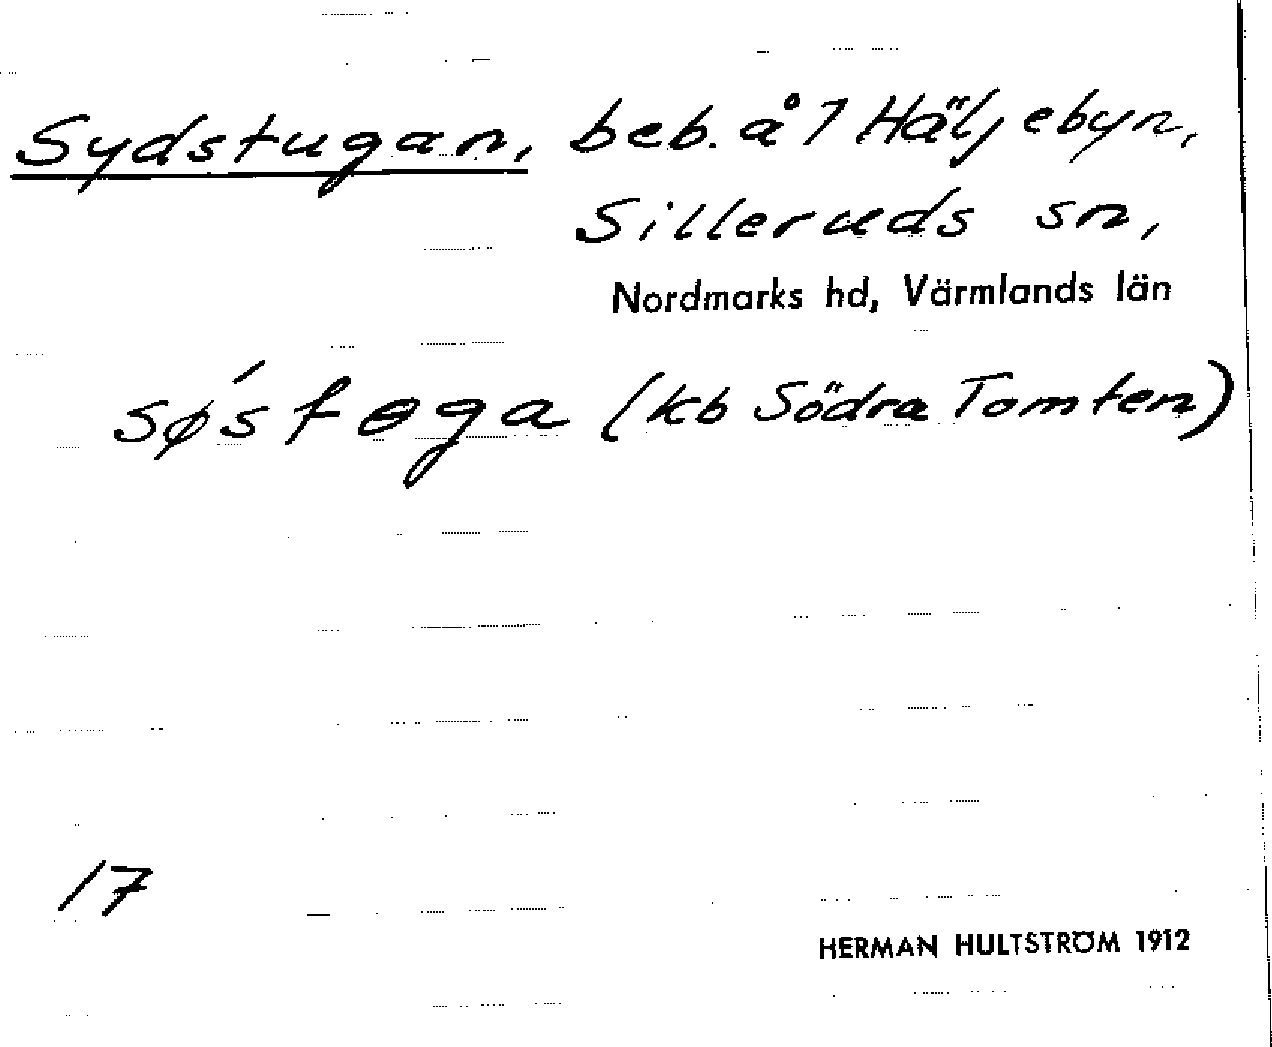 Sydstugan, beb. å 1 Häljebyn,
Silleruds sn,
Nordmarks hd, Värmlands län
sǿstɵga (kb Södra Tomten)
17
HERMAN HULTSTRÖM 1912